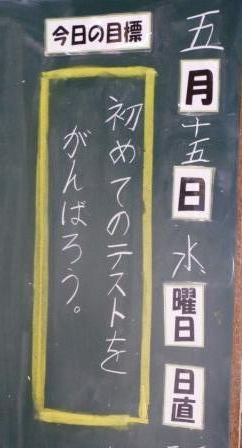 五月十五日水曜日 日直
今日の目標
初めてのテストを
がんばろう。